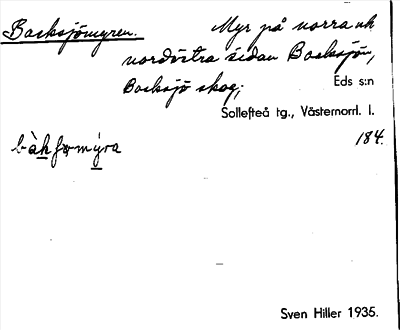 Backsjömyren. Myr på norra och
nordöstra sidan Backsjön,
Backsjö skog;
Eds s:n
Sollefteå tg., Västernorrl. l.
184.
Sven Hiller 1935.